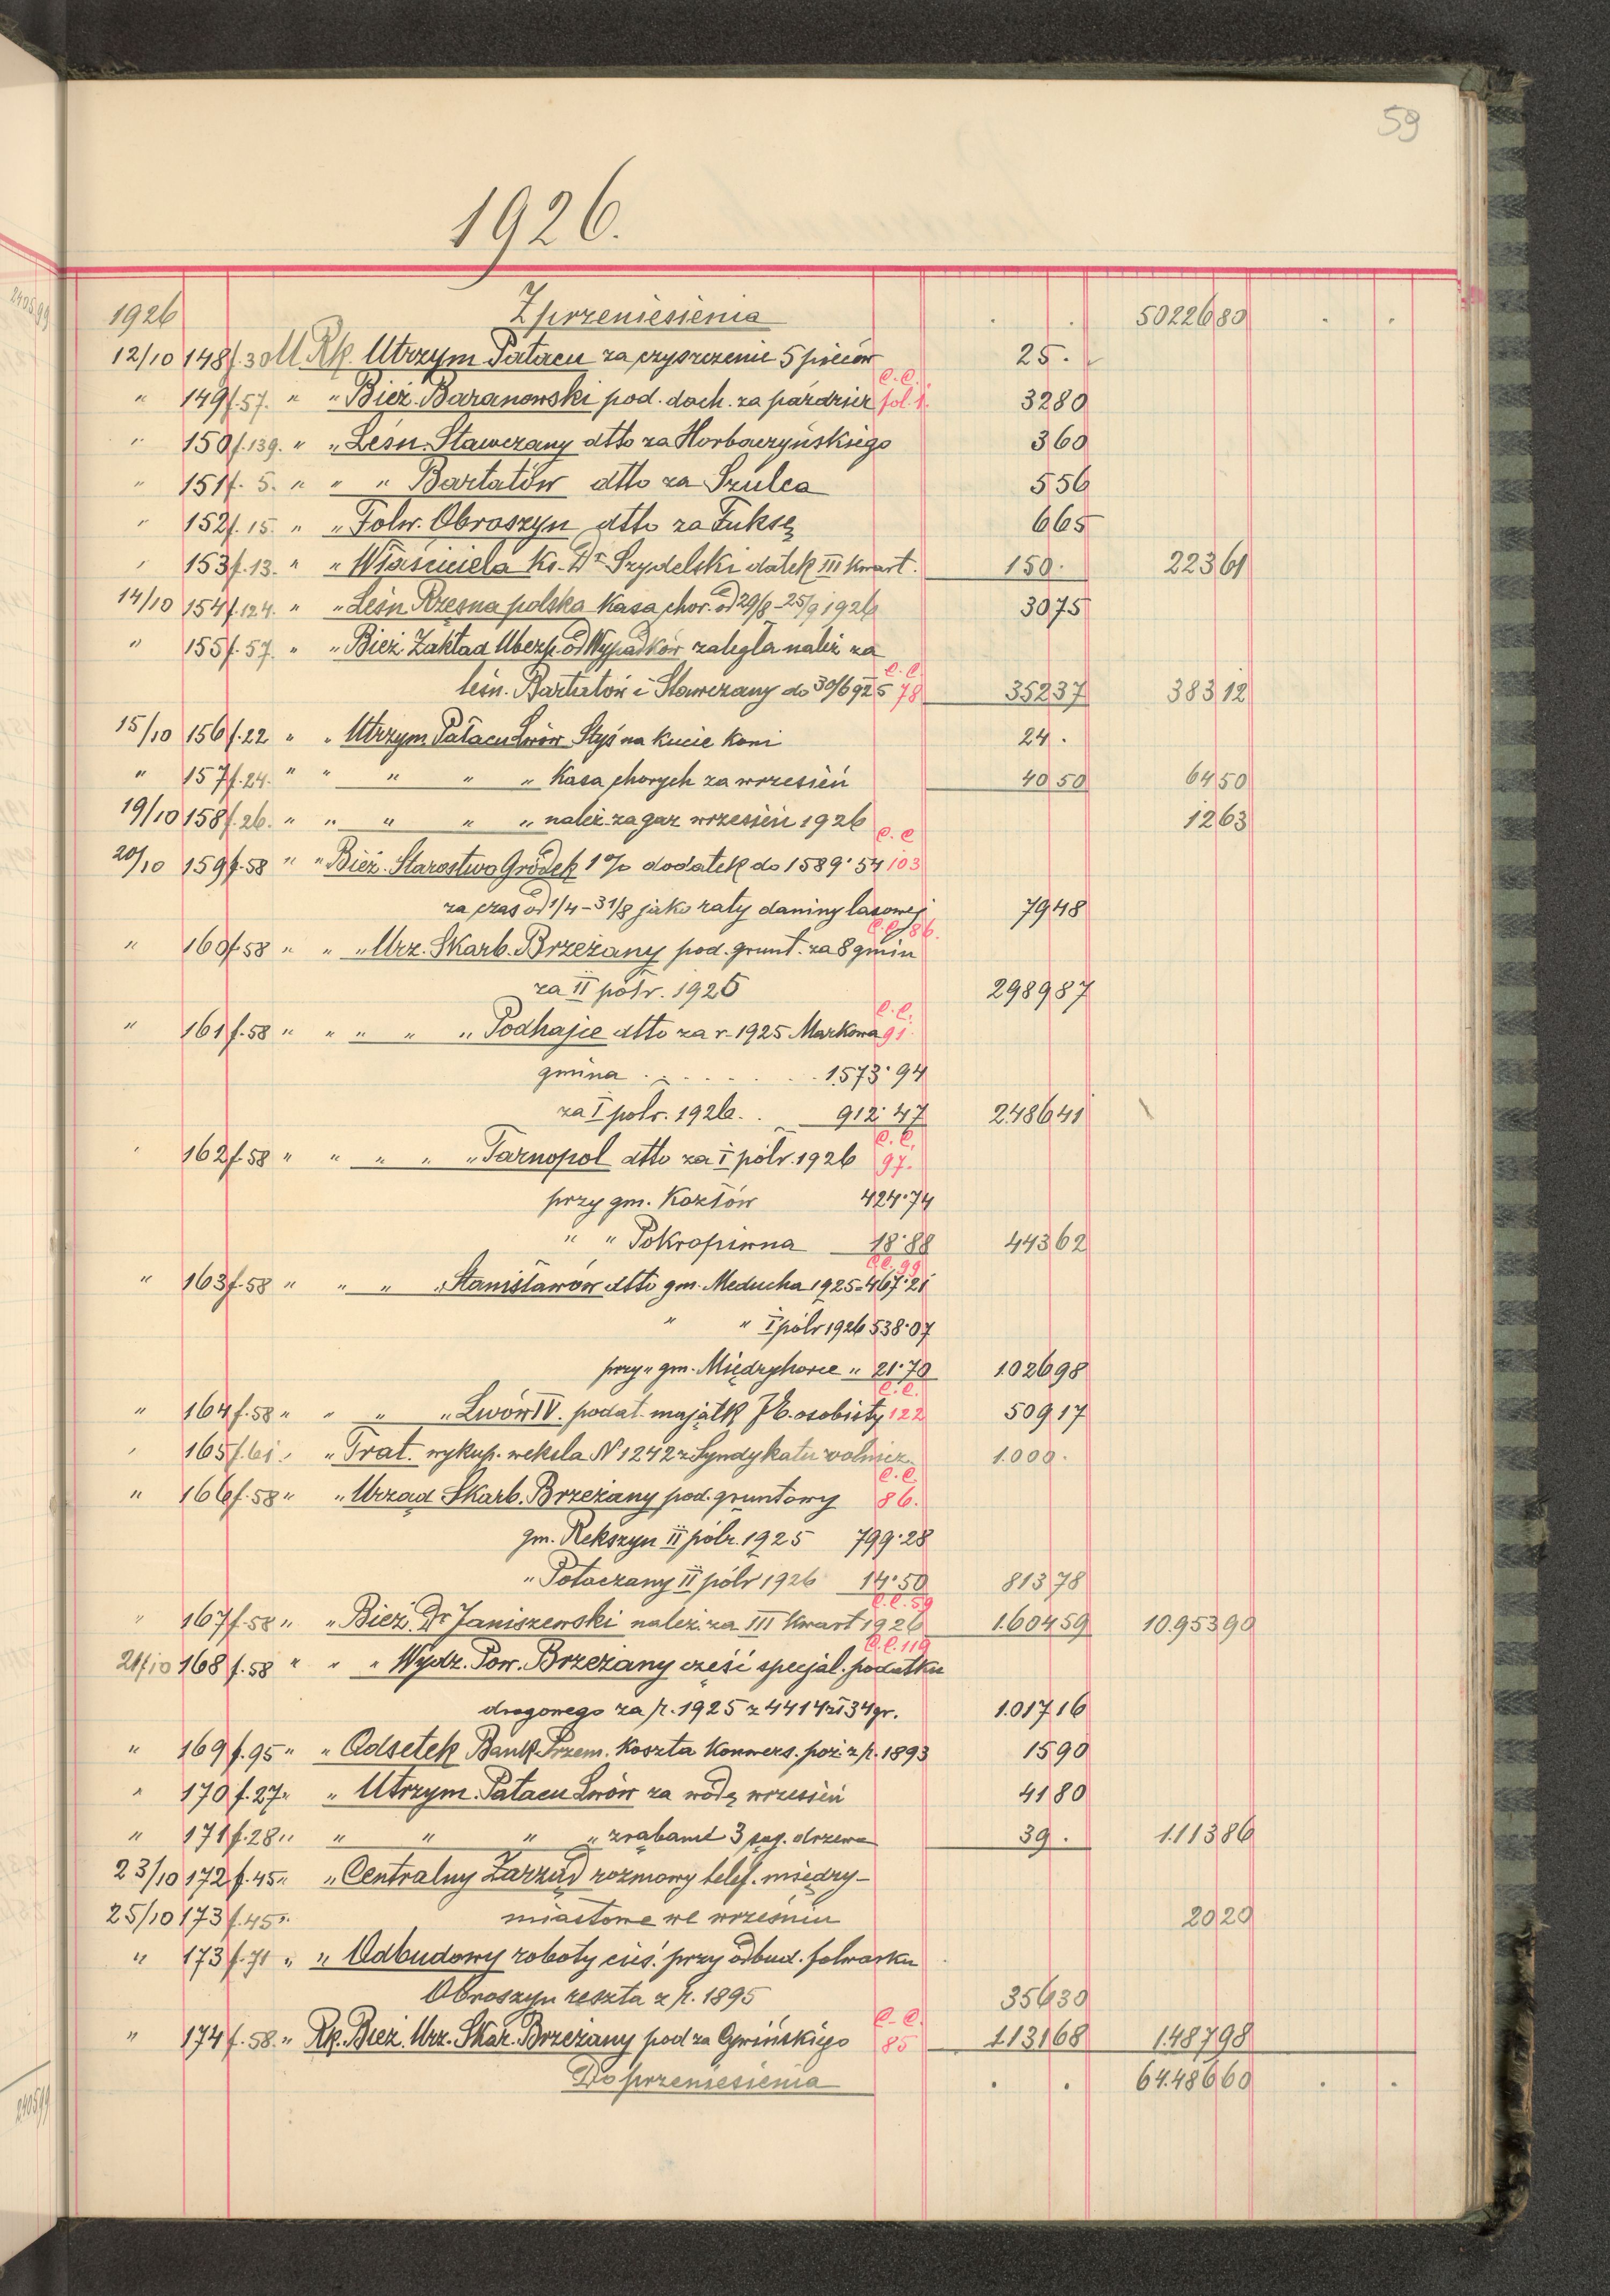 59
1926.
1926 Z przeniesienia . . 50226 80 . .
12/10 148 f. 30 M Rk. Utrzym Pałacu za czyszczenie 5 pieców 25 .
" 149 f. 57. " " Bież. Baranowski pod. doch. za paździer C.C. fol. 1. 32 80
" 150 f. 139. " " Leśn. Stawczany dtto za Horbaczyńskiego 3 60
" 151 f. 5. " " " Bartatów dtto za Szulca 5 56
" 152 f. 15. " " Folw. Obroszyn dtto za Fuksę 6 65
" 153 f. 13. " " Właściciela Ks. Dr Szydelski datek III Kwart. 150 . 223 61
14/10 154 f. 124. " " Leśn Rzęsna polska Kasa chor. od 29/8 - 25/9 1926 30 75
" 155 f. 57. " " Bież. Zakład Ubezp. od Wypadków zaległa należ za
leśn. Bartatów i Stawczany do 30/6 925 C.C. 78 352 37 383 12
15/10 156 f. 22 " " Utrzym Pałacu Lwów Styś na Kucie Koni 24 .
" 157 f. 24. " " " " " Kasa chorych za wrzesień 40 50 64 50
19/10 158 f. 26. " " " " " należ. za gaz wrzesień 1926 12 63
20/10 159 f. 58 " " Bież. Starostwo Gródek 1% dodatek do 1589·54 C.C. 103
za czas od 1/4 - 31/8 jako raty daniny lasowej 79 48
" 160 f. 58 " " " Urz. Skarb. Brzeżany pod. grunt. za 8 gmin C.C. 86.
za II półr. 1926 2989 87
" 161 f. 58 " " " " " Podhajce dtto za r. 1925 Markowa C.C. 91.
gmina . . . . . . . 1573·94
za I półr. 1926. . 912·47 2486 41
" 162 f. 58 " " " " " Tarnopol dtto za I półr. 1926 C.C. 97.
przy gm. Kozłów 424·74
" " Pokropiwna 18·88 443 62
" 163 f. 58 " " " " Stanisławów dtto gm. Meducha 1925 = 467·21 C.C. 99
" " I półr 1926 538·07
przy " gm. Międzyhorce " 21·70 1026 98
" 164 f. 58 " " " " Lwów IV. podat. majątk JE. osobisty C.C. 122 509 17
" 165 f. 61. " " Trat. wykup. weksla № 1242 z Syndykatu rolnicz. 1.000 .
" 166 f. 58 " " Urząd Skarb. Brzeżany pod. gruntowy C.C. 86.
gm. Rekszyn II półr. 1925 799·28
" Potoczany II półr 1926 14·50 813 78
" 167 f. 58 " " Bież. Dr Janiszewski należ. za III Kwart 1926 C.C. 59 1.604 59 10.953 90
21/10 168 f. 58 " " " Wydz. Pow. Brzeżany cześć specjal. podatku C.C. 119
drogowego za r. 1925 z 4414 zł 34 gr. 1.017 16
" 169 f. 95 " " Odsetek Bank Przem. Koszta Konwers. poż. z r. 1893 15 90
" 170 f. 27 " " Utrzym. Pałacu Lwów za wodę wrzesień 41 80
" 171 f. 28 " " " " " zrąbanie 3 sąg. drzewa 39 . 1.113 86
23/10 172 f. 45 " " Centralny Zarząd rozmowy telef. między-
25/10 173 f. 45 " miastowe we wrześniu 20 20
" 173 f. 71 " " Odbudowy roboty cieś. przy odbud. folwarku
Obroszyn reszta z r. 1895 356 30
" 174 f. 58. " Rk. Bież. Urz. Skar. Brzeżany pod za C.C. 85 1131 68 1.487 98
Do przeniesienia . . 64.486 60 . .